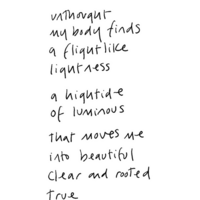 unthought
my body finds
a flightlike
lightness
a hightide
of luminous
that moves me
into beautiful
clear and rooted
true